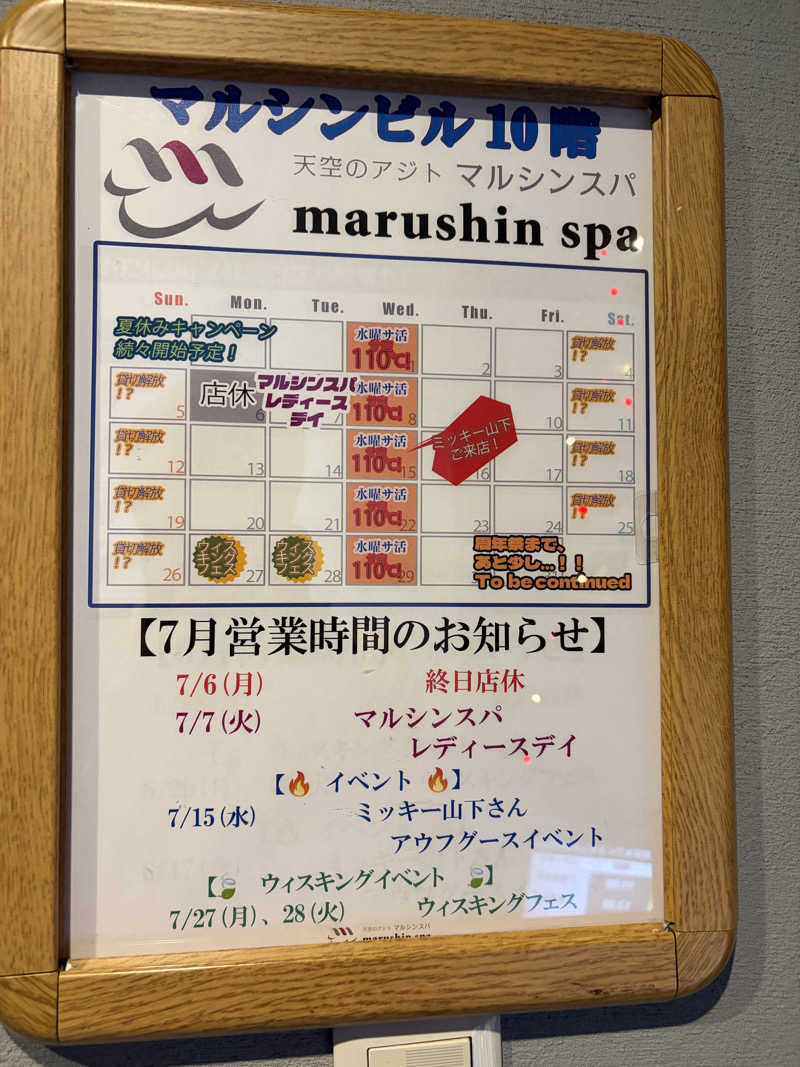 マルシンビル10階
天空のアジト マルシンスパ
marushin spa
Sun. Mon. Tue. Wed. Thu. Fri. Sat.
夏休みキャンペーン
続々開始予定！
水曜サ活
110℃!
1 2 3
貸切解放
!?
4
貸切解放
!?
5
店休
6
マルシンスパ
レディース
デイ
7
水曜サ活
110℃!
8
ミッキー山下
ご来店！
10
貸切解放
!?
11
貸切解放
!?
12 13 14
水曜サ活
110℃!
15 16 17
貸切解放
!?
18
貸切解放
!?
19 20 21
水曜サ活
110℃!
22 23 24
貸切解放
!?
25
貸切解放
!?
26
ウィスキングフェス
27
ウィスキングフェス
28
水曜サ活
110℃!
29
周年祭まで、
あと少し...！！
To be continued
【7月営業時間のお知らせ】
7/6(月) 終日店休
7/7(火) マルシンスパ
レディースデイ
【🔥 イベント 🔥】
7/15(水) ミッキー山下さん
アウフグースイベント
【🍃 ウィスキングイベント 🍃】
7/27(月)、28(火) ウィスキングフェス
天空のアジト マルシンスパ
marushin spa